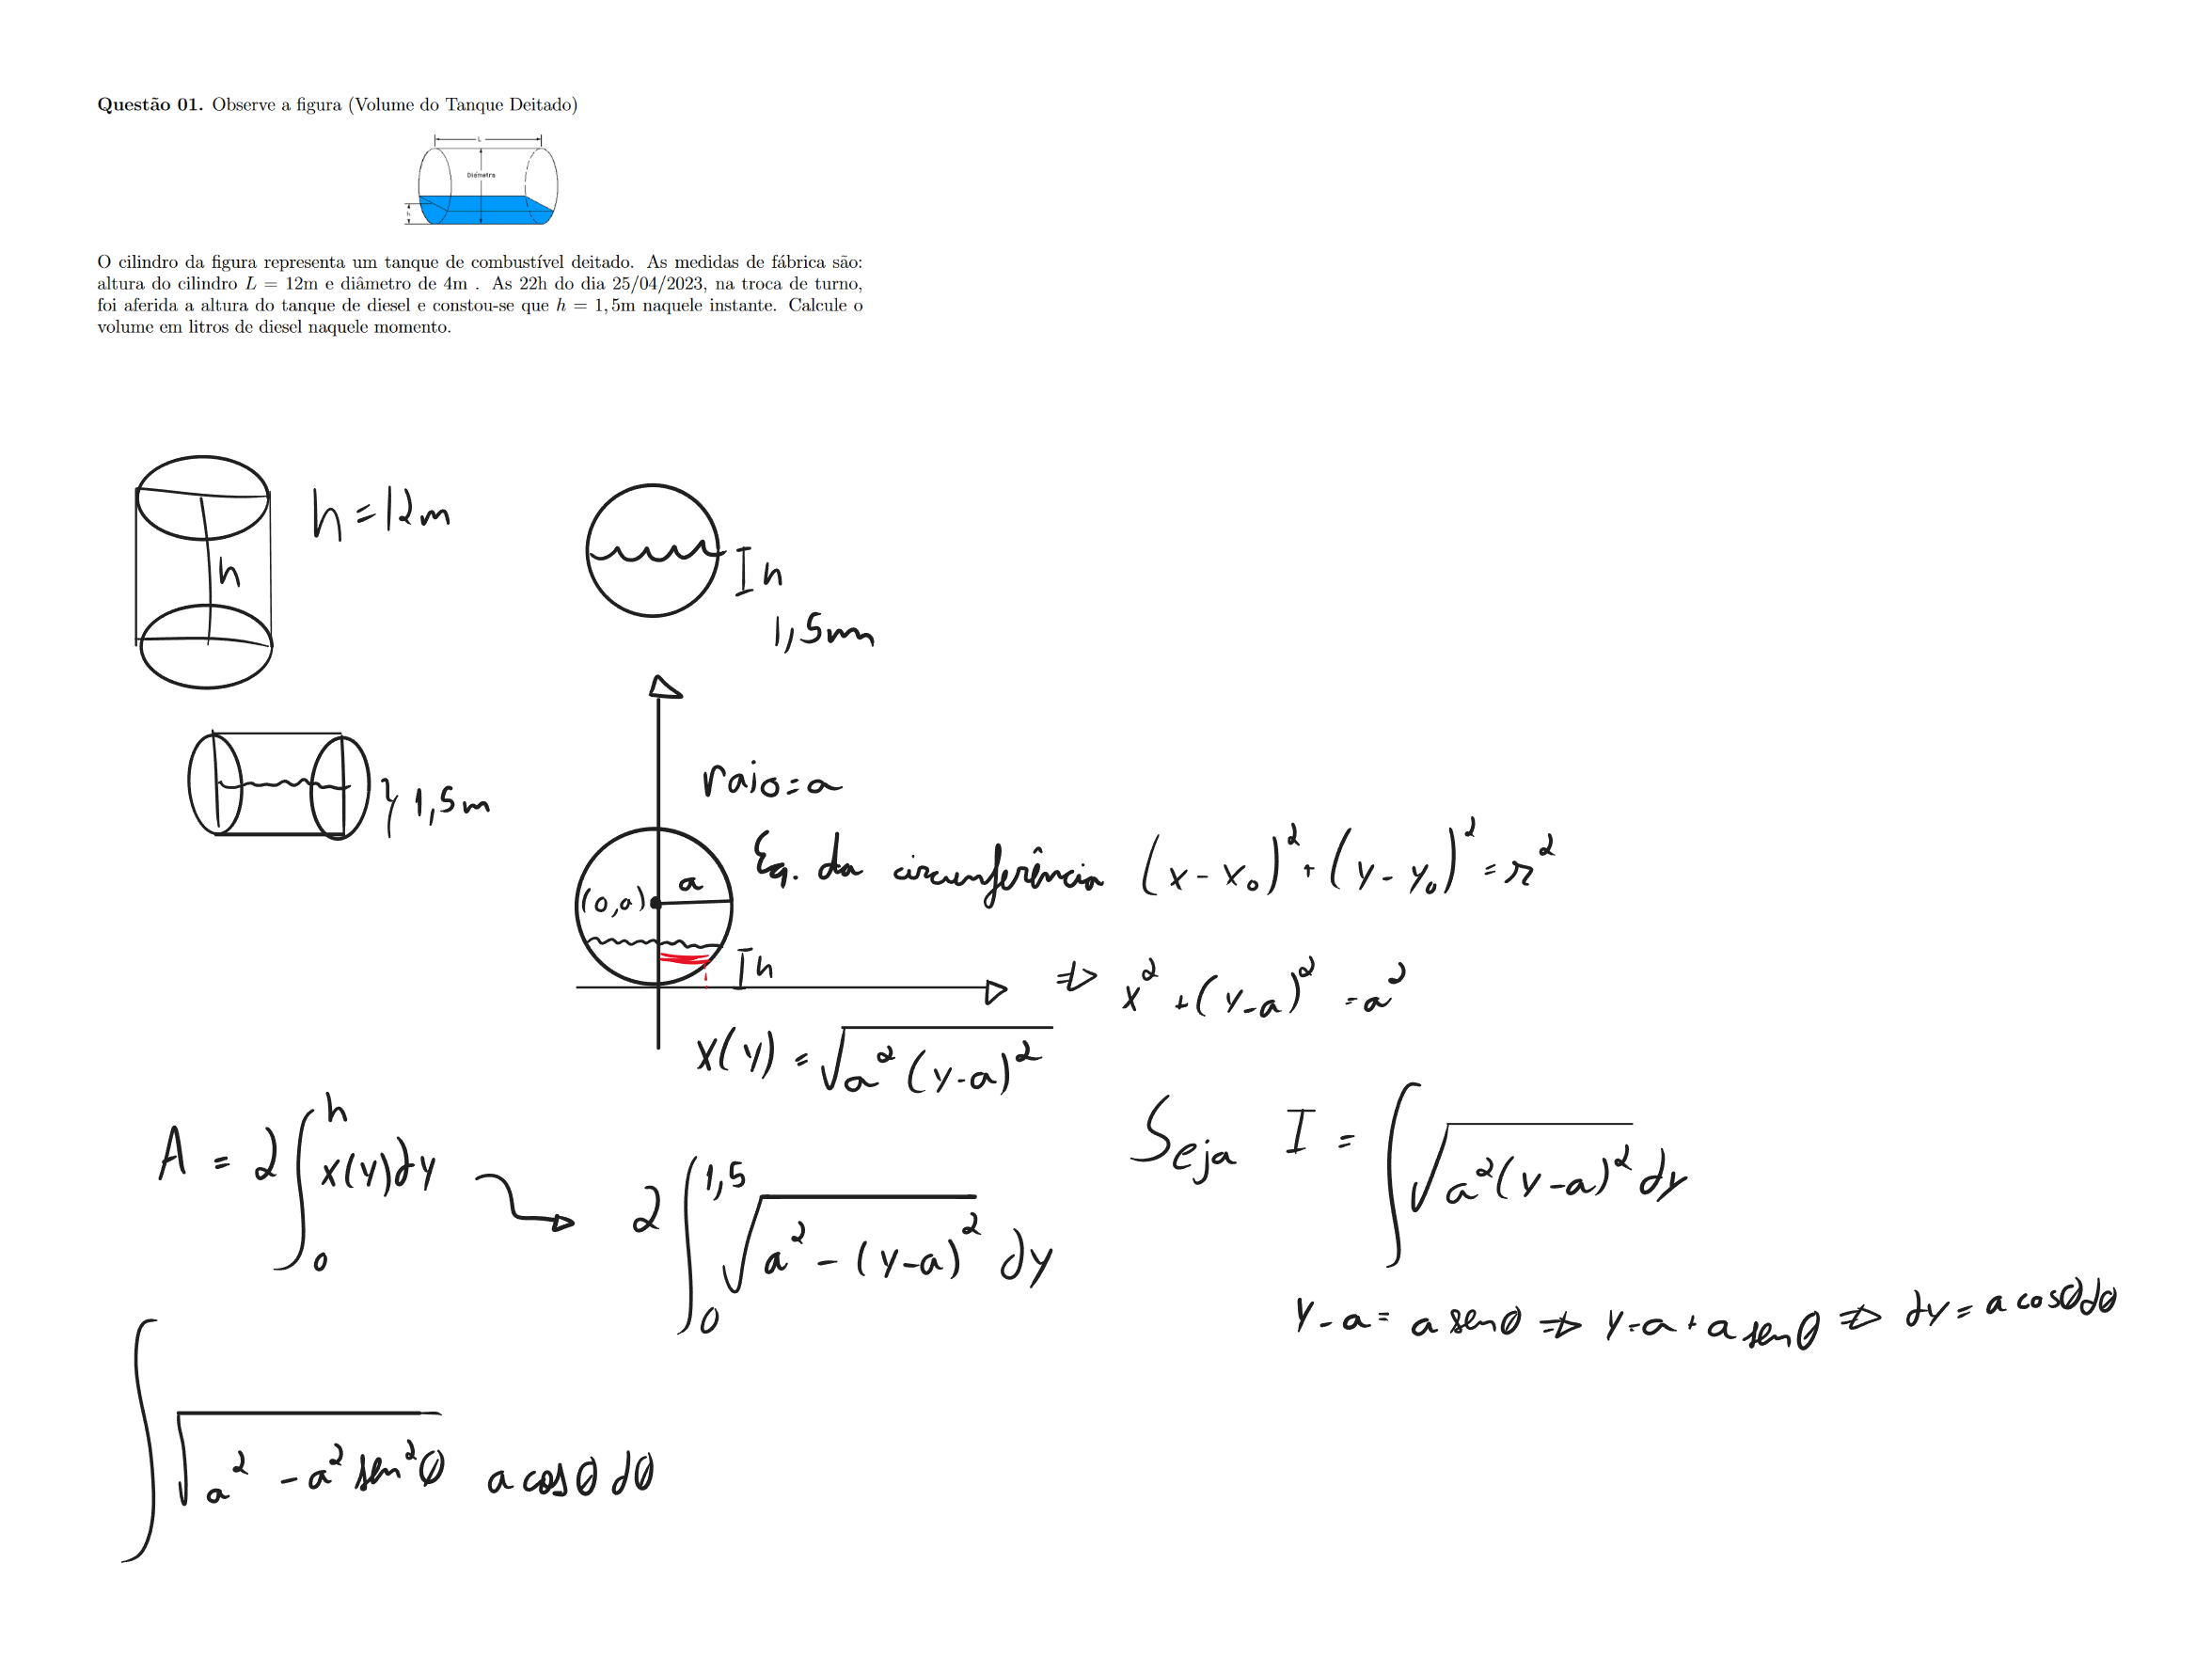 Questão 01. Observe a figura (Volume do Tanque Deitado)
L
Diâmetro
h
O cilindro da figura representa um tanque de combustível deitado. As medidas de fábrica são:
altura do cilindro L = 12m e diâmetro de 4m . As 22h do dia 25/04/2023, na troca de turno,
foi aferida a altura do tanque de diesel e constou-se que h = 1,5m naquele instante. Calcule o
volume em litros de diesel naquele momento.
h=12m
h
I h
1,5m
1,5m
raio=a
Eq. da circunferência (x-x₀)²+(y-y₀)²=r²
(0,a)
a
I h
⇒ x²+(y-a)²=a²
x(y)=√(a²(y-a)²)
A = 2∫₀ʰ x(y)dy
2∫₀^1,5 √(a²-(y-a)²) dy
Seja I = ∫√(a²(y-a)²) dy
y-a= a senθ ⇒ y=a+a senθ ⇒ dy=a cosθdθ
∫√(a²-a²sen²θ) a cosθ dθ